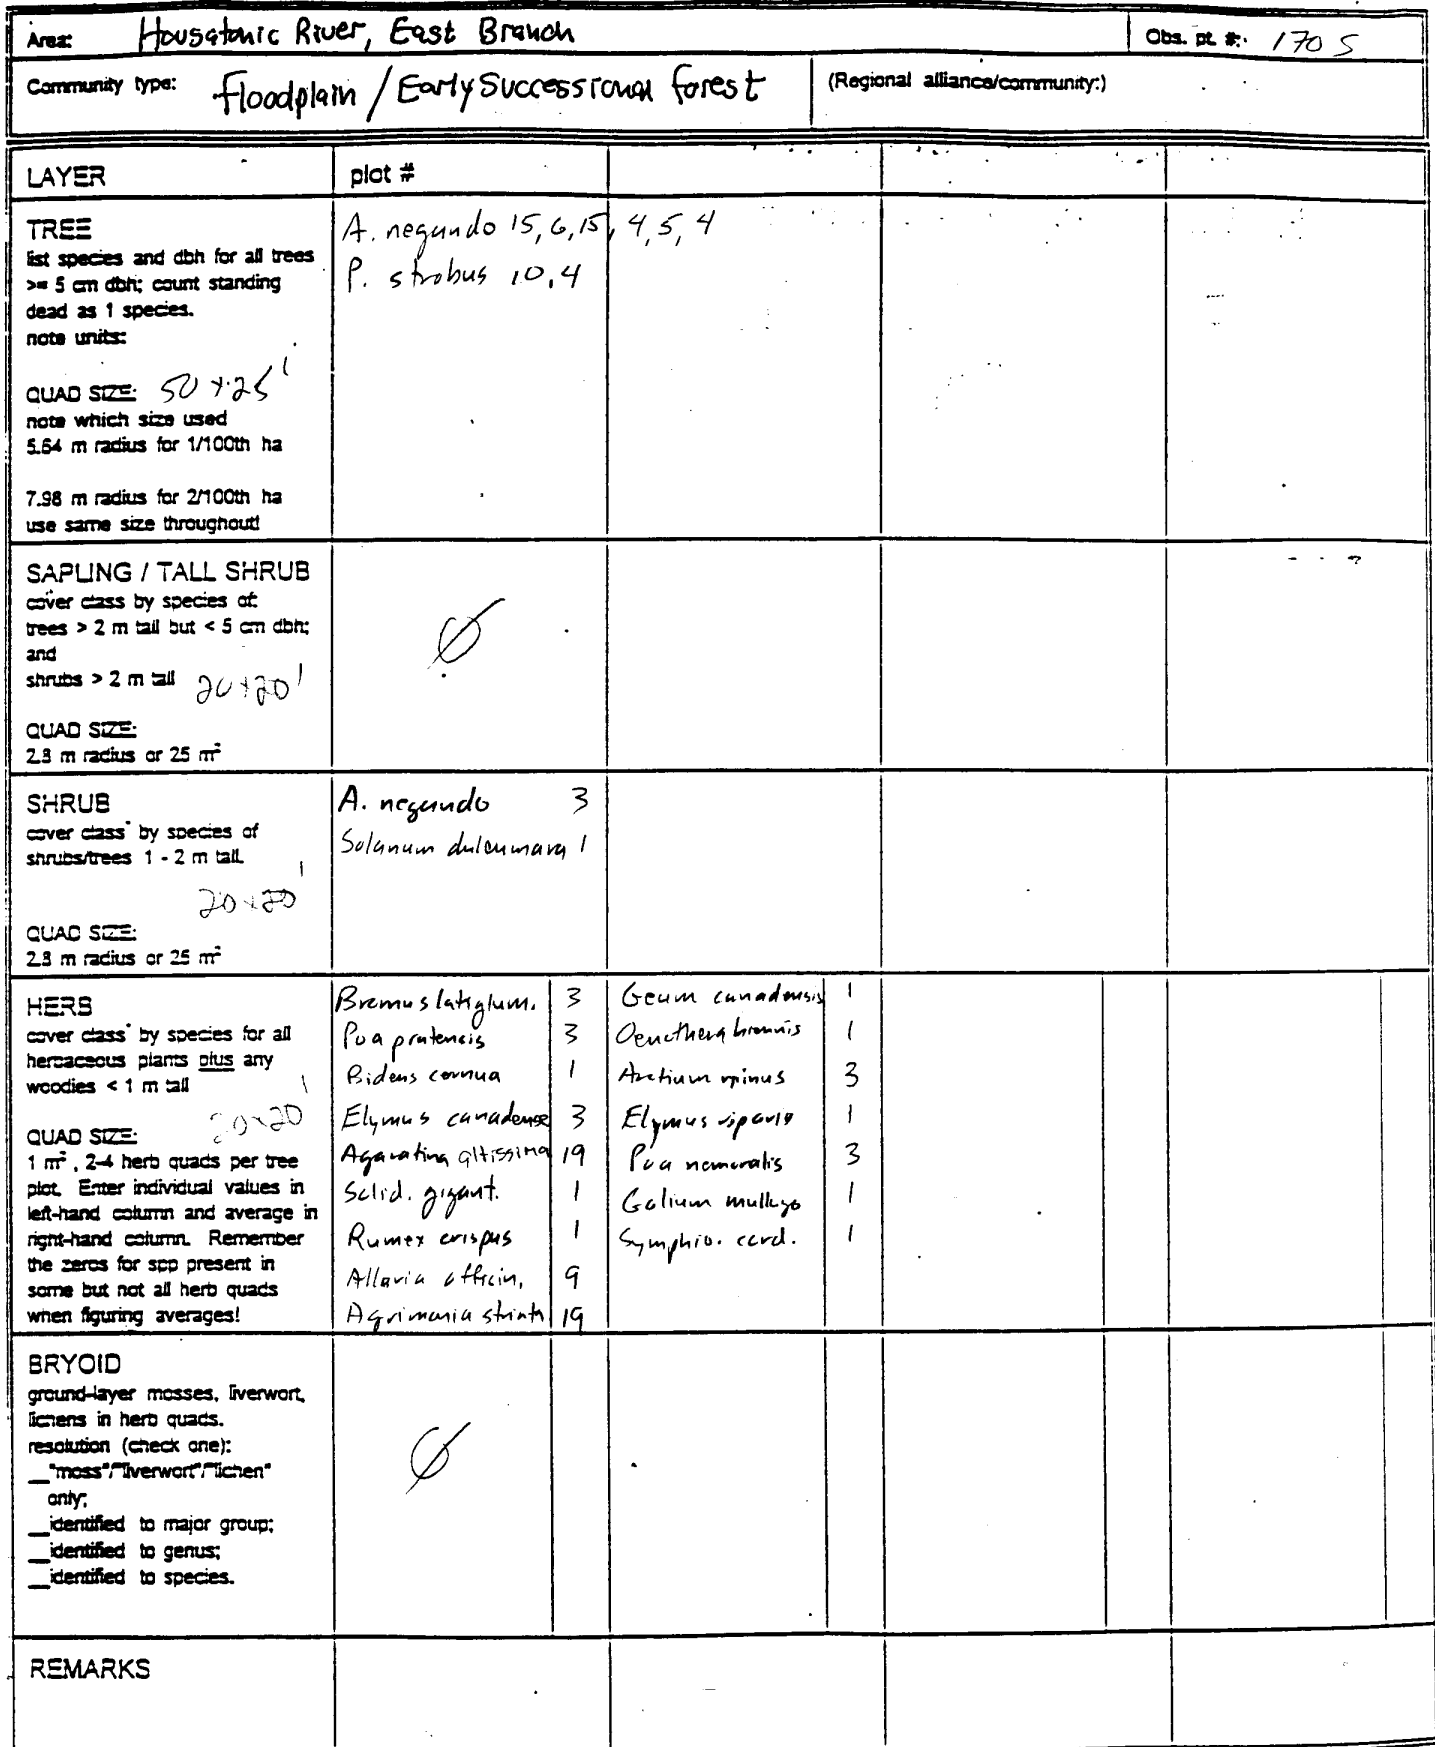 Area: Housatonic River, East Branch
Obs. pt. #: 170 S
Community type: floodplain / Early Successional forest
(Regional alliance/community:)
LAYER
plot #
TREE
list species and dbh for all trees
>= 5 cm dbh; count standing
dead as 1 species.
note units:
QUAD SIZE: 50 x 25'
note which size used
5.64 m radius for 1/100th ha
7.98 m radius for 2/100th ha
use same size throughout!
A. negundo 15, 6, 15, 4, 5, 4
P. strobus 10, 4
SAPLING / TALL SHRUB
cover class by species of:
trees > 2 m tall but < 5 cm dbh;
and
shrubs > 2 m tall 20x20'
QUAD SIZE:
2.8 m radius or 25 m²
Ø
SHRUB
cover class* by species of
shrubs/trees 1 - 2 m tall.
20x20'
QUAD SIZE:
2.8 m radius or 25 m²
A. negundo 3
Solanum dulcumara 1
HERB
cover class* by species for all
herbaceous plants plus any
woodies < 1 m tall
20x20'
QUAD SIZE:
1 m², 2-4 herb quads per tree
plot. Enter individual values in
left-hand column and average in
right-hand column. Remember
the zeros for spp present in
some but not all herb quads
when figuring averages!
Bromus latiglum. 3
Poa pratensis 3
Bidens cernua 1
Elymus canadense 3
Agaratina altissima 19
Solid. gigant. 1
Rumex crispus 1
Allaria officin. 9
Agrimonia striata 19
Geum canadensis 1
Oenothera biennis 1
Arctium minus 3
Elymus ripario 1
Poa nemoralis 3
Galium mullugo 1
Symphio. cord. 1
BRYOID
ground-layer mosses, liverwort,
lichens in herb quads.
resolution (check one):
__"moss"/"liverwort"/"lichen"
only;
__identified to major group;
__identified to genus;
__identified to species.
Ø
REMARKS